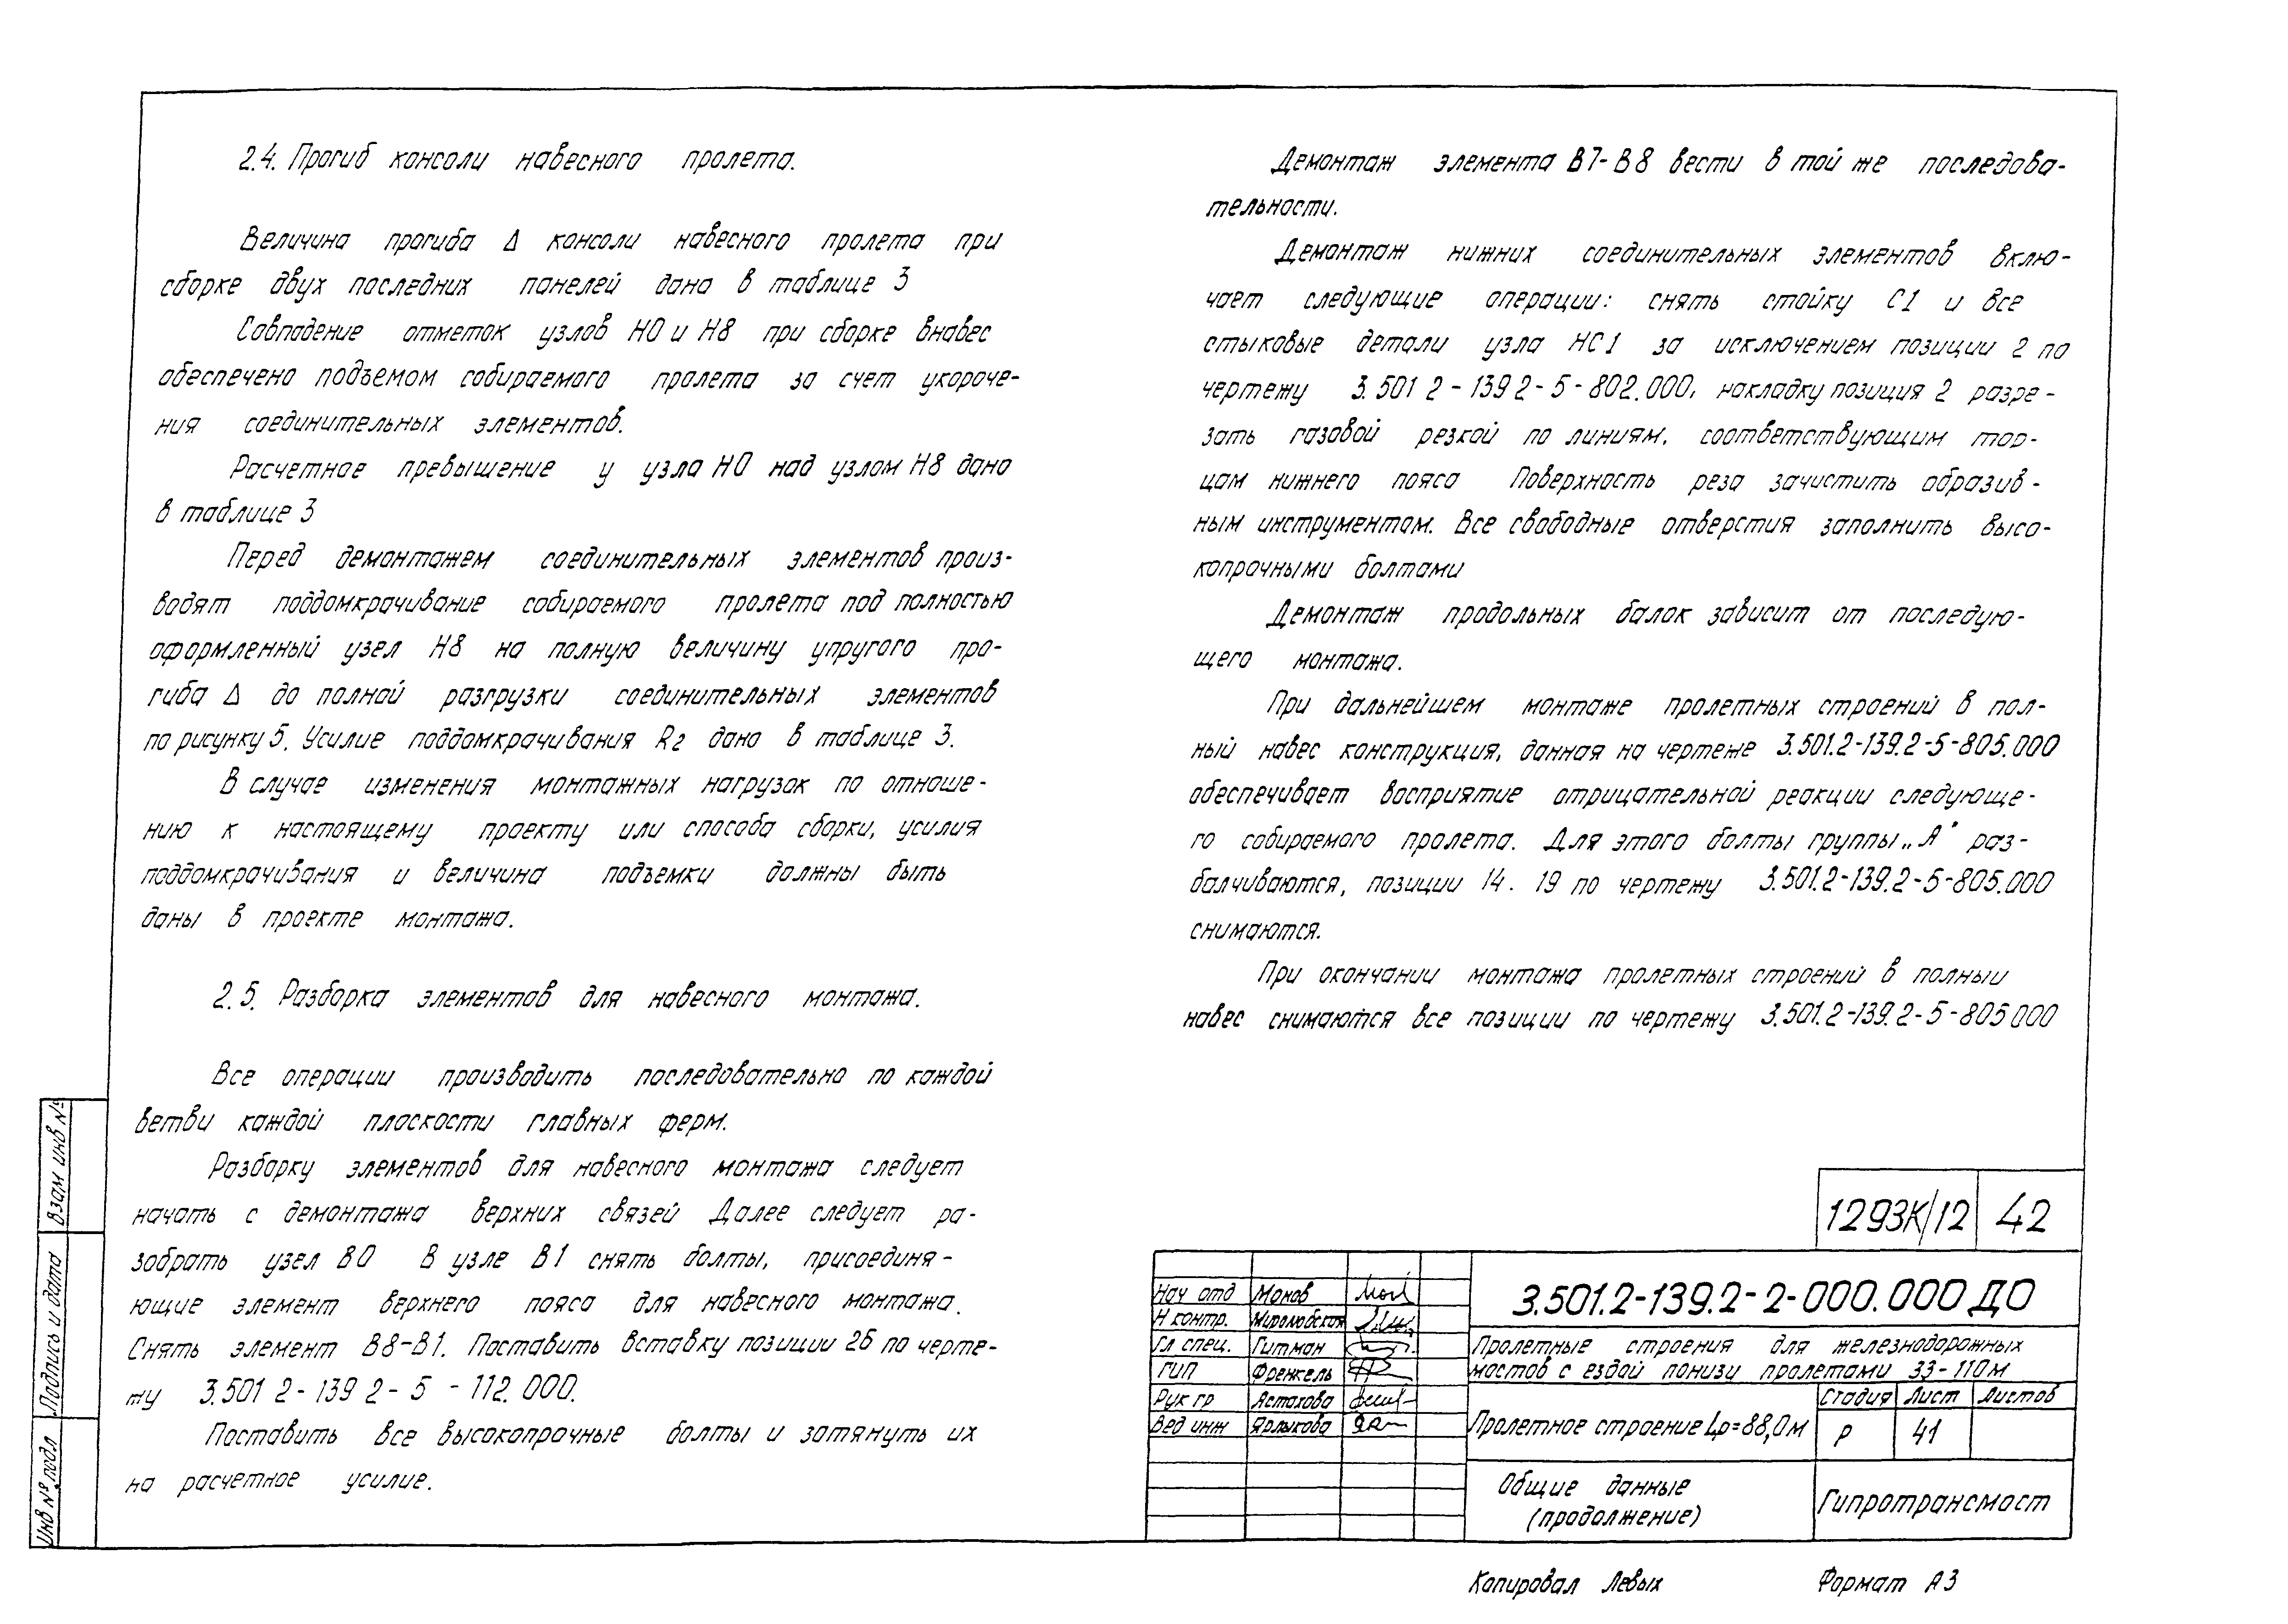 2.4. Прогиб консоли навесного пролета.
Величина прогиба Δ консоли навесного пролета при
сборке двух последних панелей дана в таблице 3
Совпадение отметок узлов Н0 и Н8 при сборке внавес
обеспечено подъемом собираемого пролета за счет укороче-
ния соединительных элементов.
Расчетное превышение у узла Н0 над узлом Н8 дано
в таблице 3
Перед демонтажем соединительных элементов произ-
водят поддомкрачивание собираемого пролета под полностью
оформленный узел Н8 на полную величину упругого про-
гиба Δ до полной разгрузки соединительных элементов
по рисунку 5. Усилие поддомкрачивания R2 дано в таблице 3.
В случае изменения монтажных нагрузок по отноше-
нию к настоящему проекту или способа сборки, усилия
поддомкрачивания и величина подъемки должны быть
даны в проекте монтажа.
2.5. Разборка элементов для навесного монтажа.
Все операции производить последовательно по каждой
ветви каждой плоскости главных ферм.
Разборку элементов для навесного монтажа следует
начать с демонтажа верхних связей Далее следует ра-
зобрать узел В0 В узле В1 снять болты, присоединя-
ющие элемент верхнего пояса для навесного монтажа.
Снять элемент В8-В1. Поставить вставку позиции 26 по черте-
жу 3.501 2-139 2-5-112.000.
Поставить все высокопрочные болты и затянуть их
на расчетное усилие.
Демонтаж элемента В7-В8 вести в той же последова-
тельности.
Демонтаж нижних соединительных элементов вклю-
чает следующие операции: снять стойку С1 и все
стыковые детали узла НС1 за исключением позиции 2 по
чертежу 3.501 2-139 2-5-802.000, накладку позиция 2 разре-
зать газовой резкой по линиям, соответствующим тор-
цам нижнего пояса Поверхность реза зачистить абразив-
ным инструментом. Все свободные отверстия заполнить высо-
копрочными болтами
Демонтаж продольных балок зависит от последую-
щего монтажа.
При дальнейшем монтаже пролетных строений в пол-
ный навес конструкция, данная на чертеже 3.501.2-139.2-5-805.000
обеспечивает восприятие отрицательной реакции следующе-
го собираемого пролета. Для этого болты группы „А" раз-
балчиваются, позиции 14. 19 по чертежу 3.501.2-139.2-5-805.000
снимаются.
При окончании монтажа пролетных строений в полный
навес снимаются все позиции по чертежу 3.501.2-139.2-5-805 000
1293К/12 42
3.501.2-139.2-2-000.000 ДО
Нач отд Монов
Н контр. Миролюбская
Гл спец. Гитман
ГИП Френкель
Рук гр Астахова
Вед инж Ярлыкова
Пролетные строения для железнодорожных
мостов с ездой понизу пролетами 33-110 м
Пролетное строение Lр=88,0м
Стадия Лист Листов
Р 41
Общие данные
(продолжение)
Гипротрансмост
Копировал Левых Формат А3
Взам инв №
Подпись и дата
Инв № подл